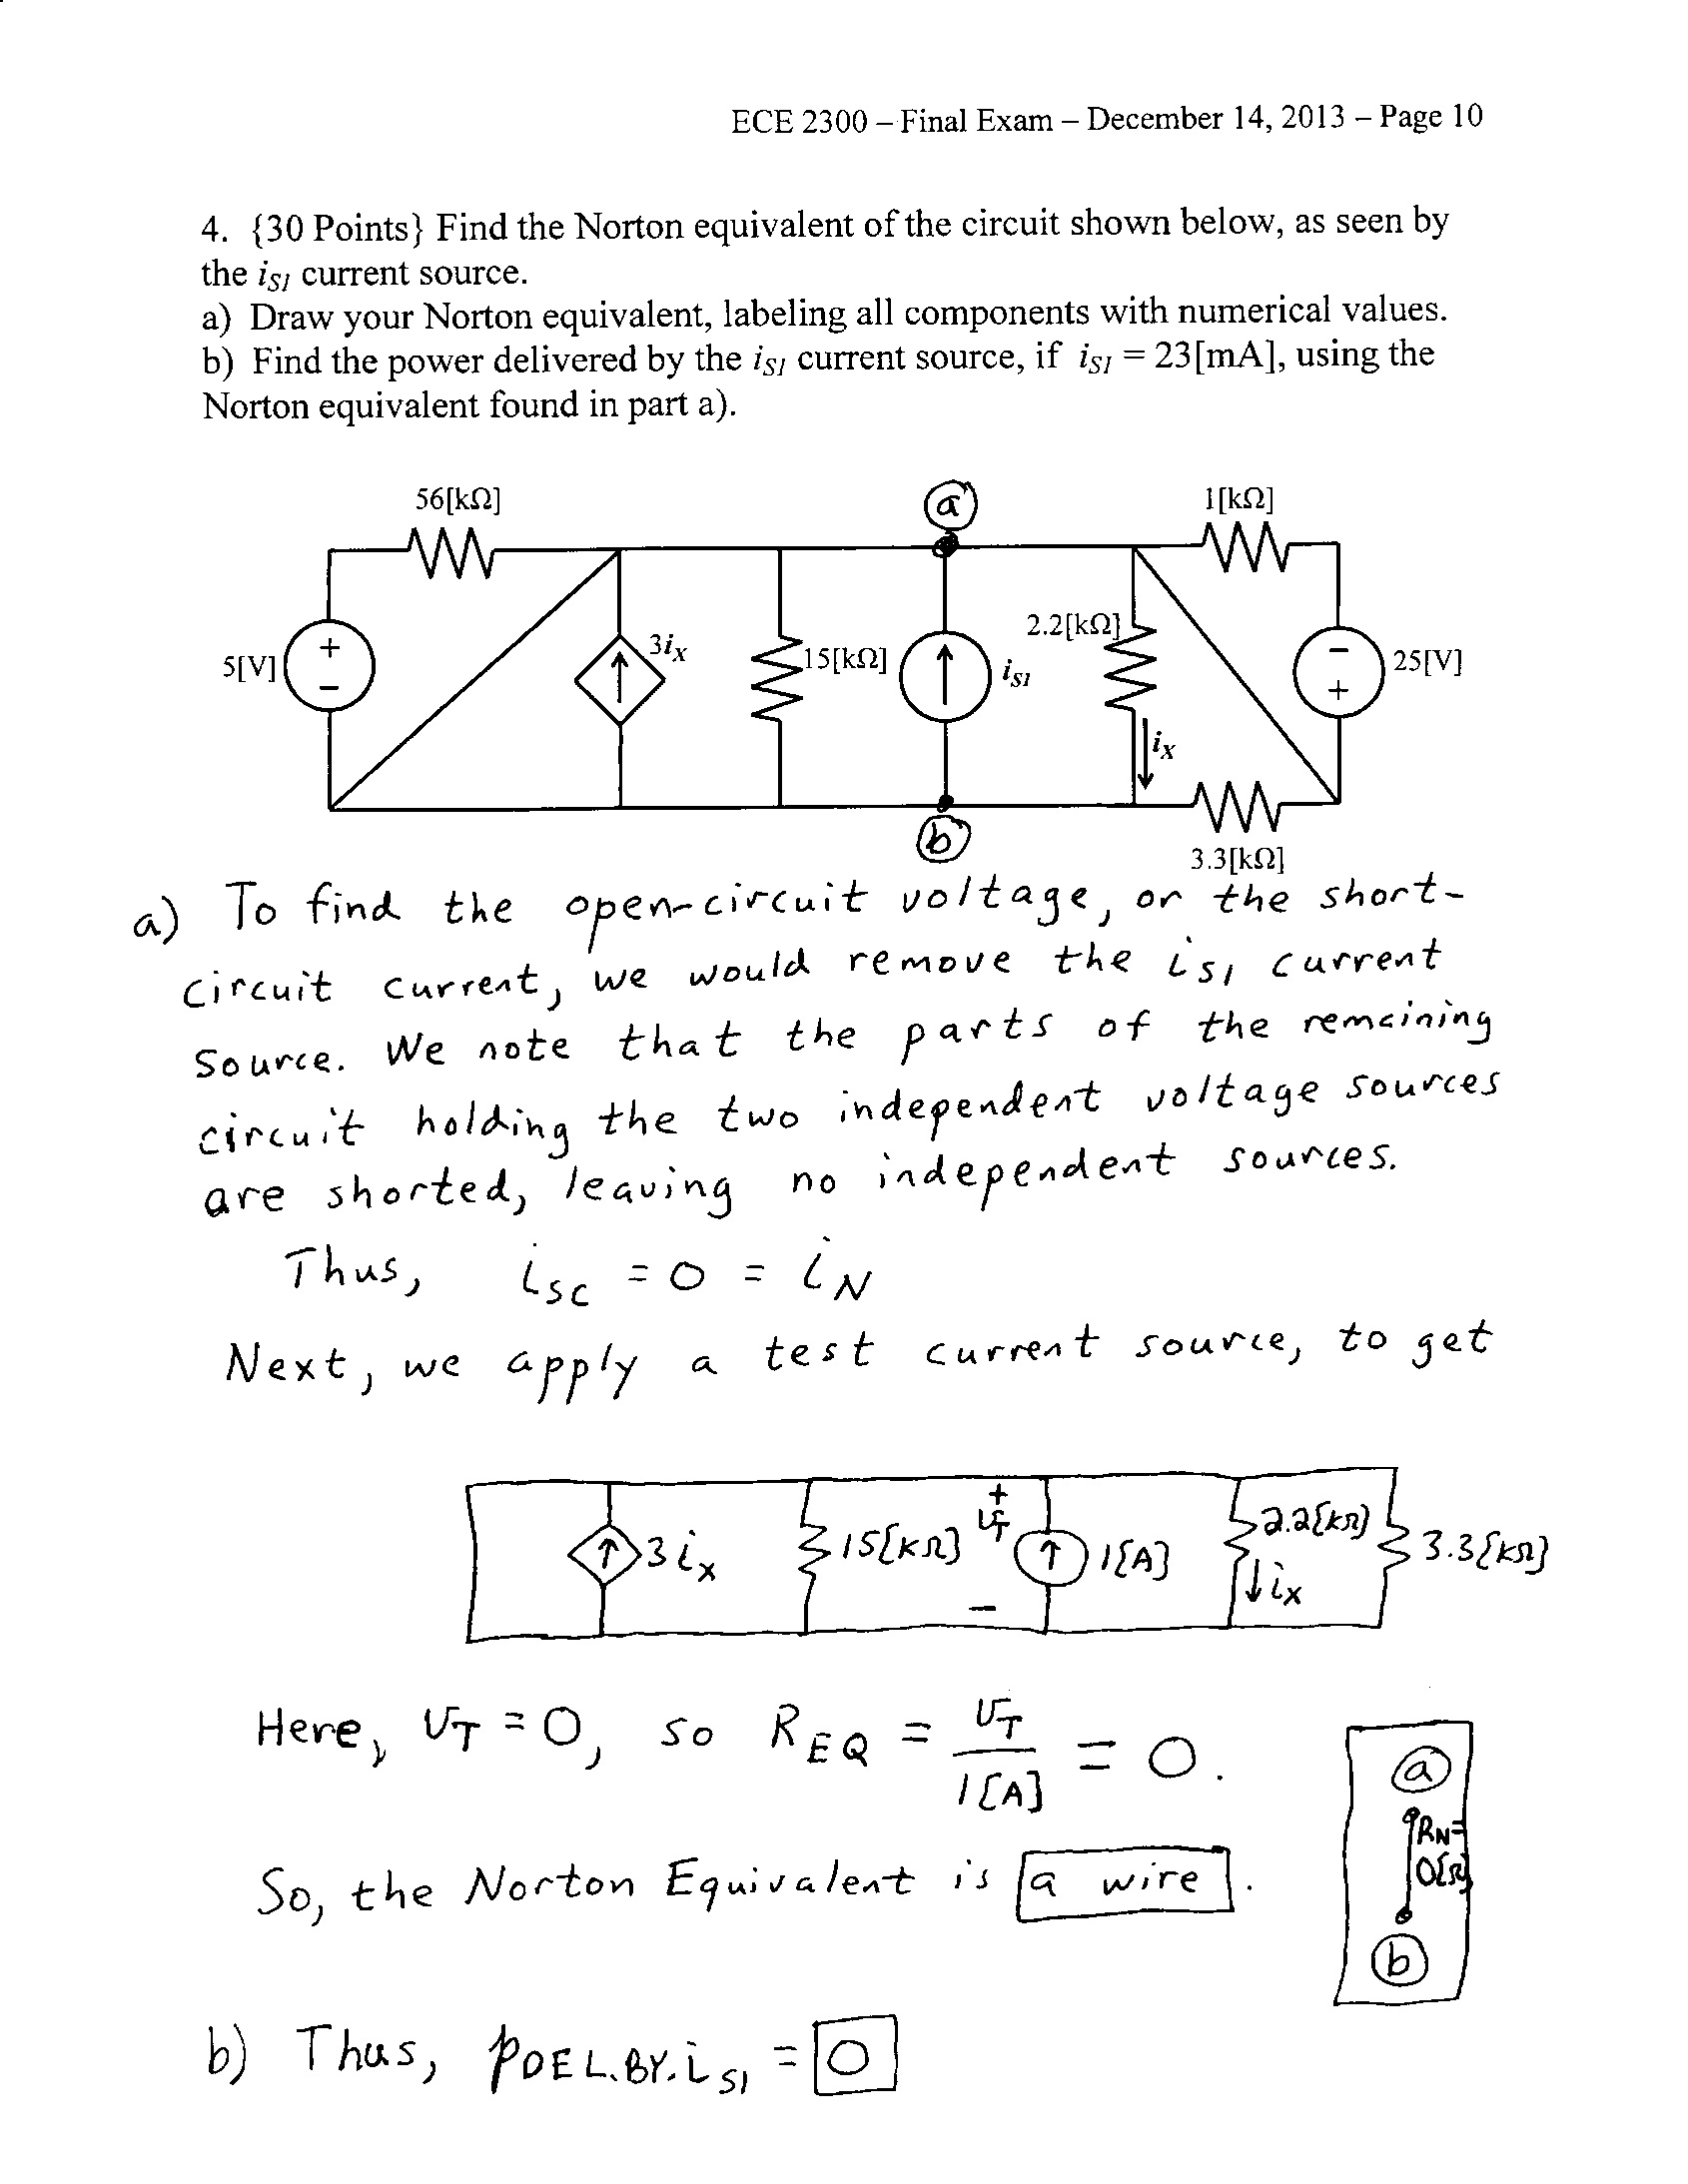 ECE 2300 – Final Exam – December 14, 2013 – Page 10
4. {30 Points} Find the Norton equivalent of the circuit shown below, as seen by
the iS1 current source.
a) Draw your Norton equivalent, labeling all components with numerical values.
b) Find the power delivered by the iS1 current source, if iS1 = 23[mA], using the
Norton equivalent found in part a).
56[kΩ]
a
1[kΩ]
5[V]
+
−
3iX
15[kΩ]
iS1
2.2[kΩ]
iX
−
+
25[V]
b
3.3[kΩ]
a) To find the open-circuit voltage, or the short-
circuit current, we would remove the iS1 current
source. We note that the parts of the remaining
circuit holding the two independent voltage sources
are shorted, leaving no independent sources.
Thus, iSC = 0 = iN
Next, we apply a test current source, to get
3iX
15[kΩ]
+
vT
−
1[A]
2.2[kΩ]
iX
3.3[kΩ]
Here, vT = 0, so REQ = vT / 1[A] = 0.
So, the Norton Equivalent is a wire.
a
RN=
0[Ω]
b
b) Thus, pDEL.BY.iS1 = 0